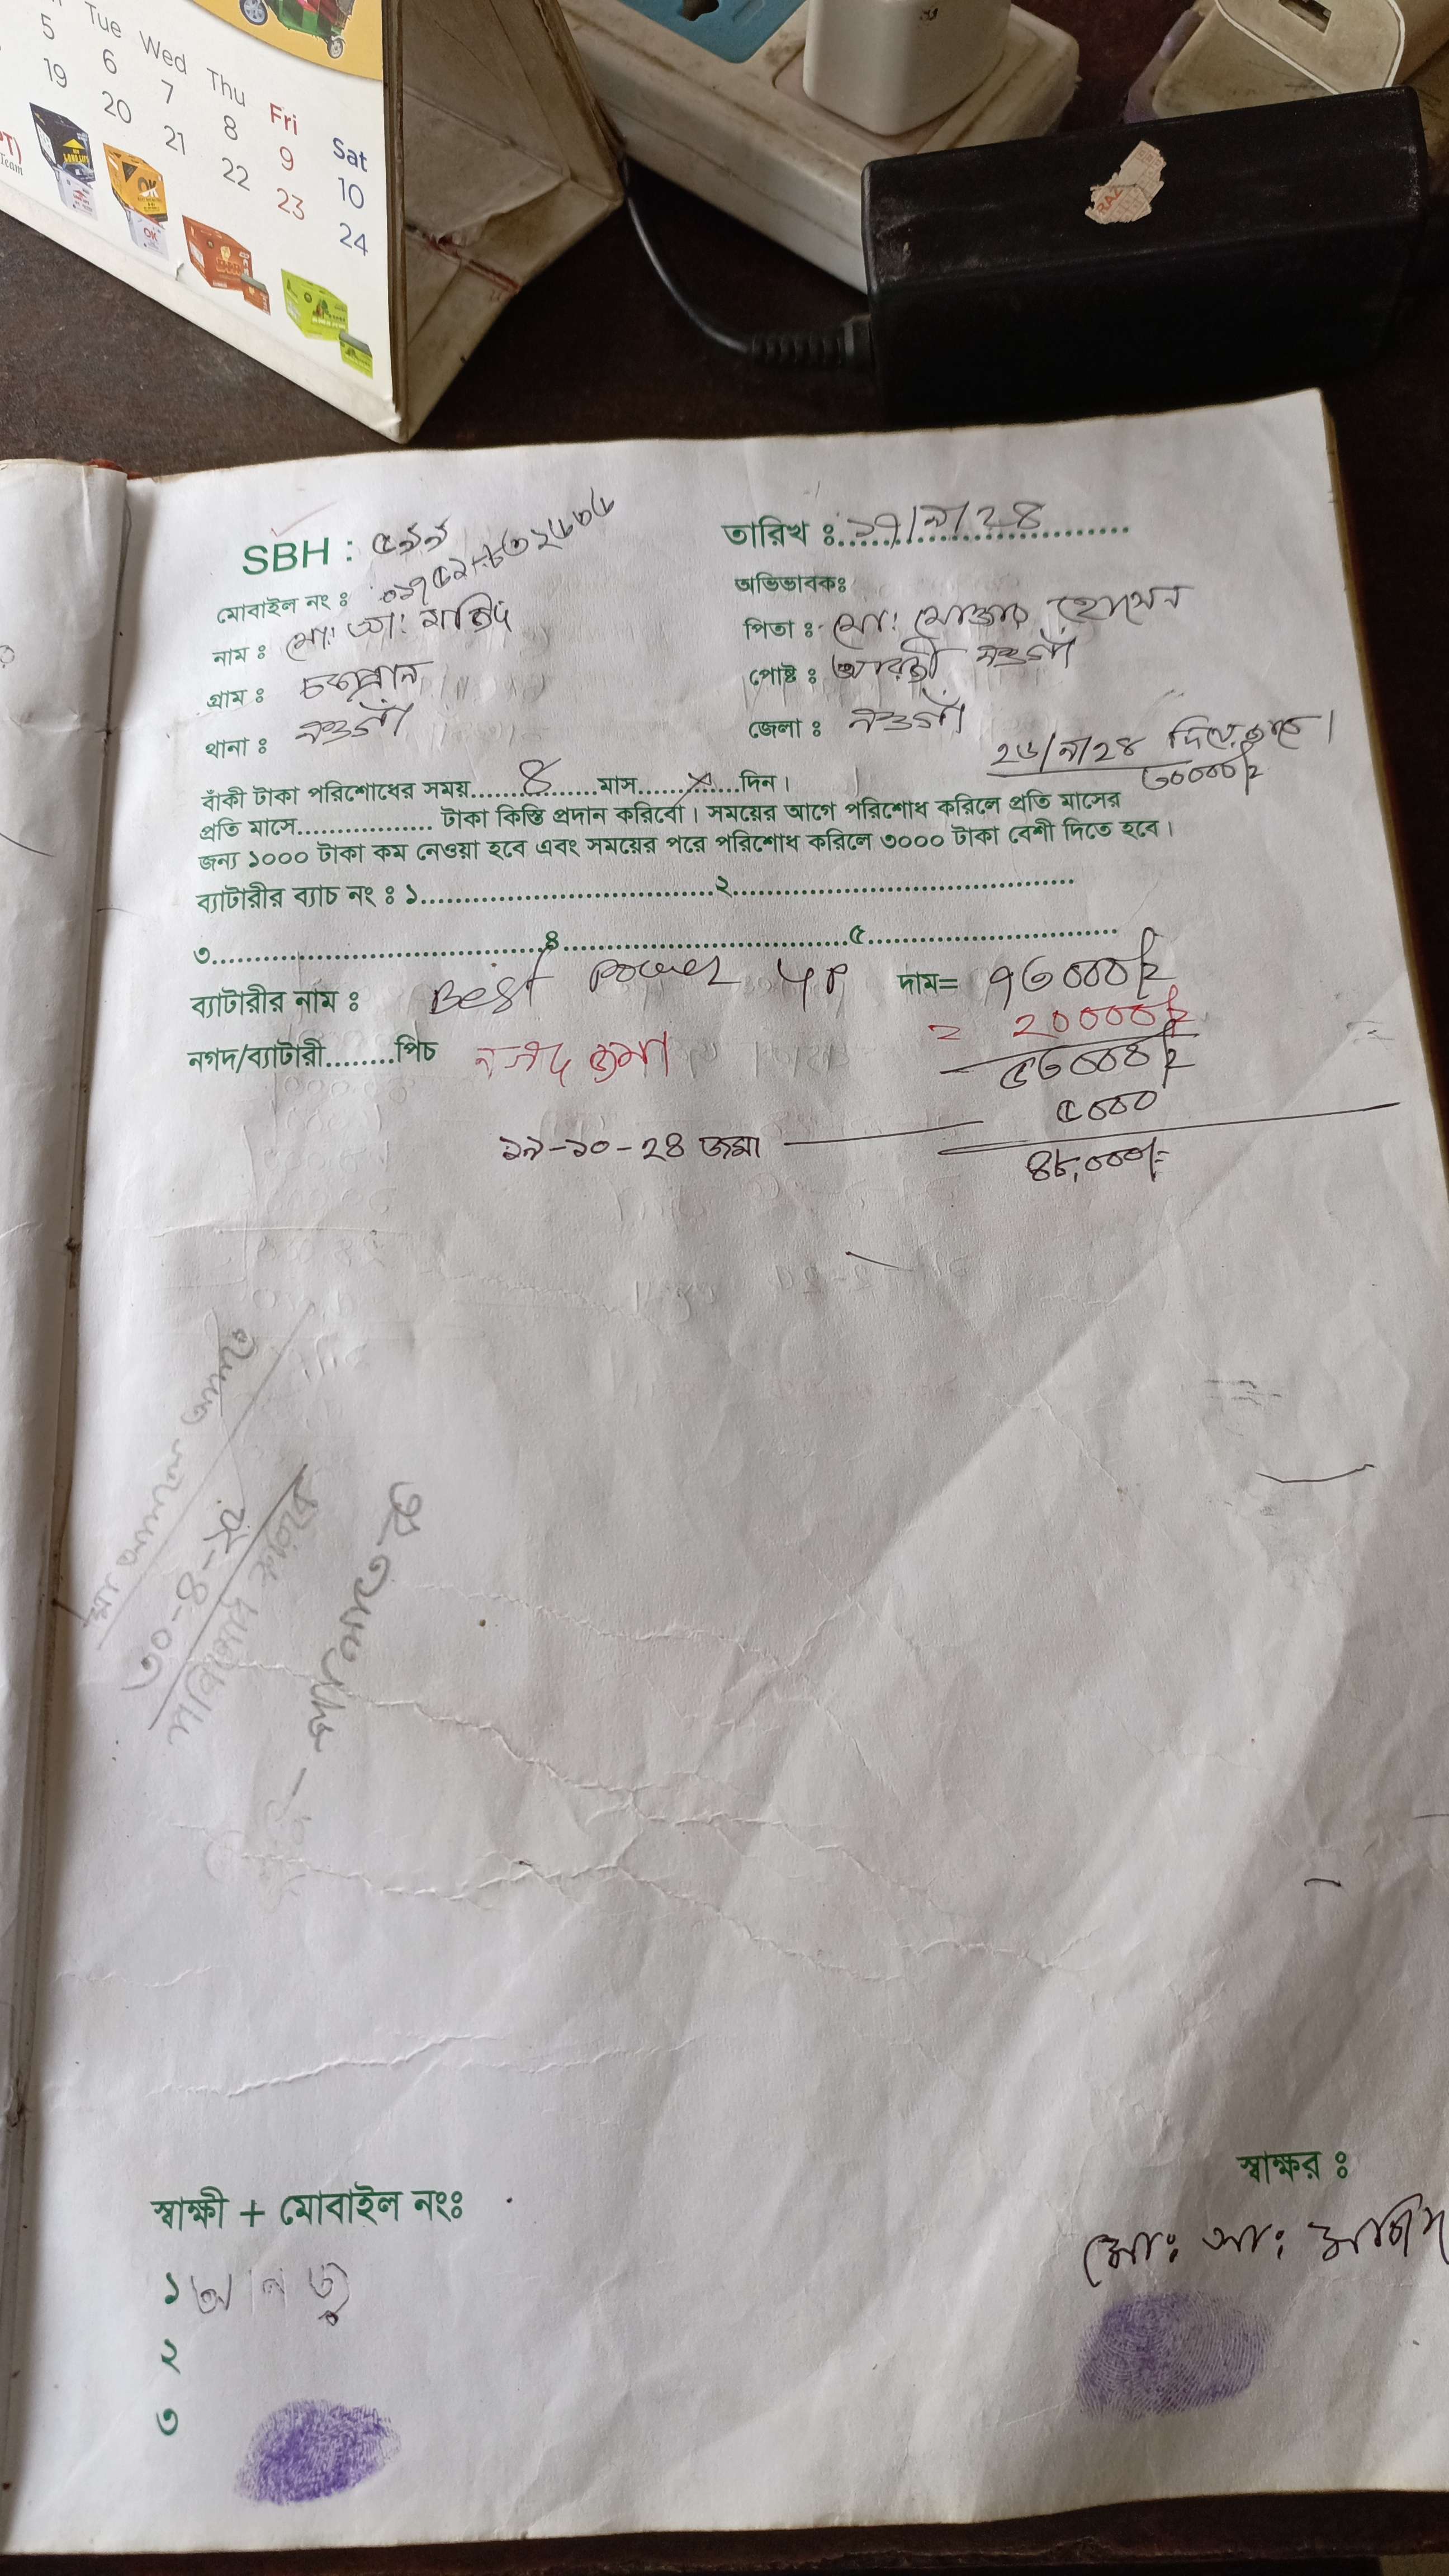 Tue Wed Thu Fri Sat
5 6 7 8 9 10
19 20 21 22 23 24
OK
SBH : ৫৯৯
তারিখ ঃ ১৭/৯/২৪
মোবাইল নং ঃ
অভিভাবকঃ
নাম ঃ মো: আ: মজিদ
পিতা ঃ মো: মোজার হোসেন
গ্রাম ঃ
পোষ্ট ঃ আরজী নওগাঁ
থানা ঃ নওগাঁ
জেলা ঃ নওগাঁ
২৬/৯/২৪ দিতে হবে।
৩০০০০/২
বাঁকী টাকা পরিশোধের সময়........৪........মাস........×........দিন।
প্রতি মাসে................. টাকা কিস্তি প্রদান করিবো। সময়ের আগে পরিশোধ করিলে প্রতি মাসের
জন্য ১০০০ টাকা কম নেওয়া হবে এবং সময়ের পরে পরিশোধ করিলে ৩০০০ টাকা বেশী দিতে হবে।
ব্যাটারীর ব্যাচ নং ঃ ১........................................২..............................................
৩.............................................৪.......................................৫..................................
ব্যাটারীর নাম ঃ Best Power 4P দাম= ৭৩০০০/২
নগদ/ব্যাটারী........পিচ নগদ জমা = ২০০০০/২
৫৩০০০/২
৫০০০
১৯-১০-২৪ জমা ৪৮,০০০/=
৩০-৪-২৫
পরিশোধ করিবে
স্বাক্ষর ঃ
স্বাক্ষী + মোবাইল নংঃ
মো: আ: মজিদ
১ আনজু
২
৩